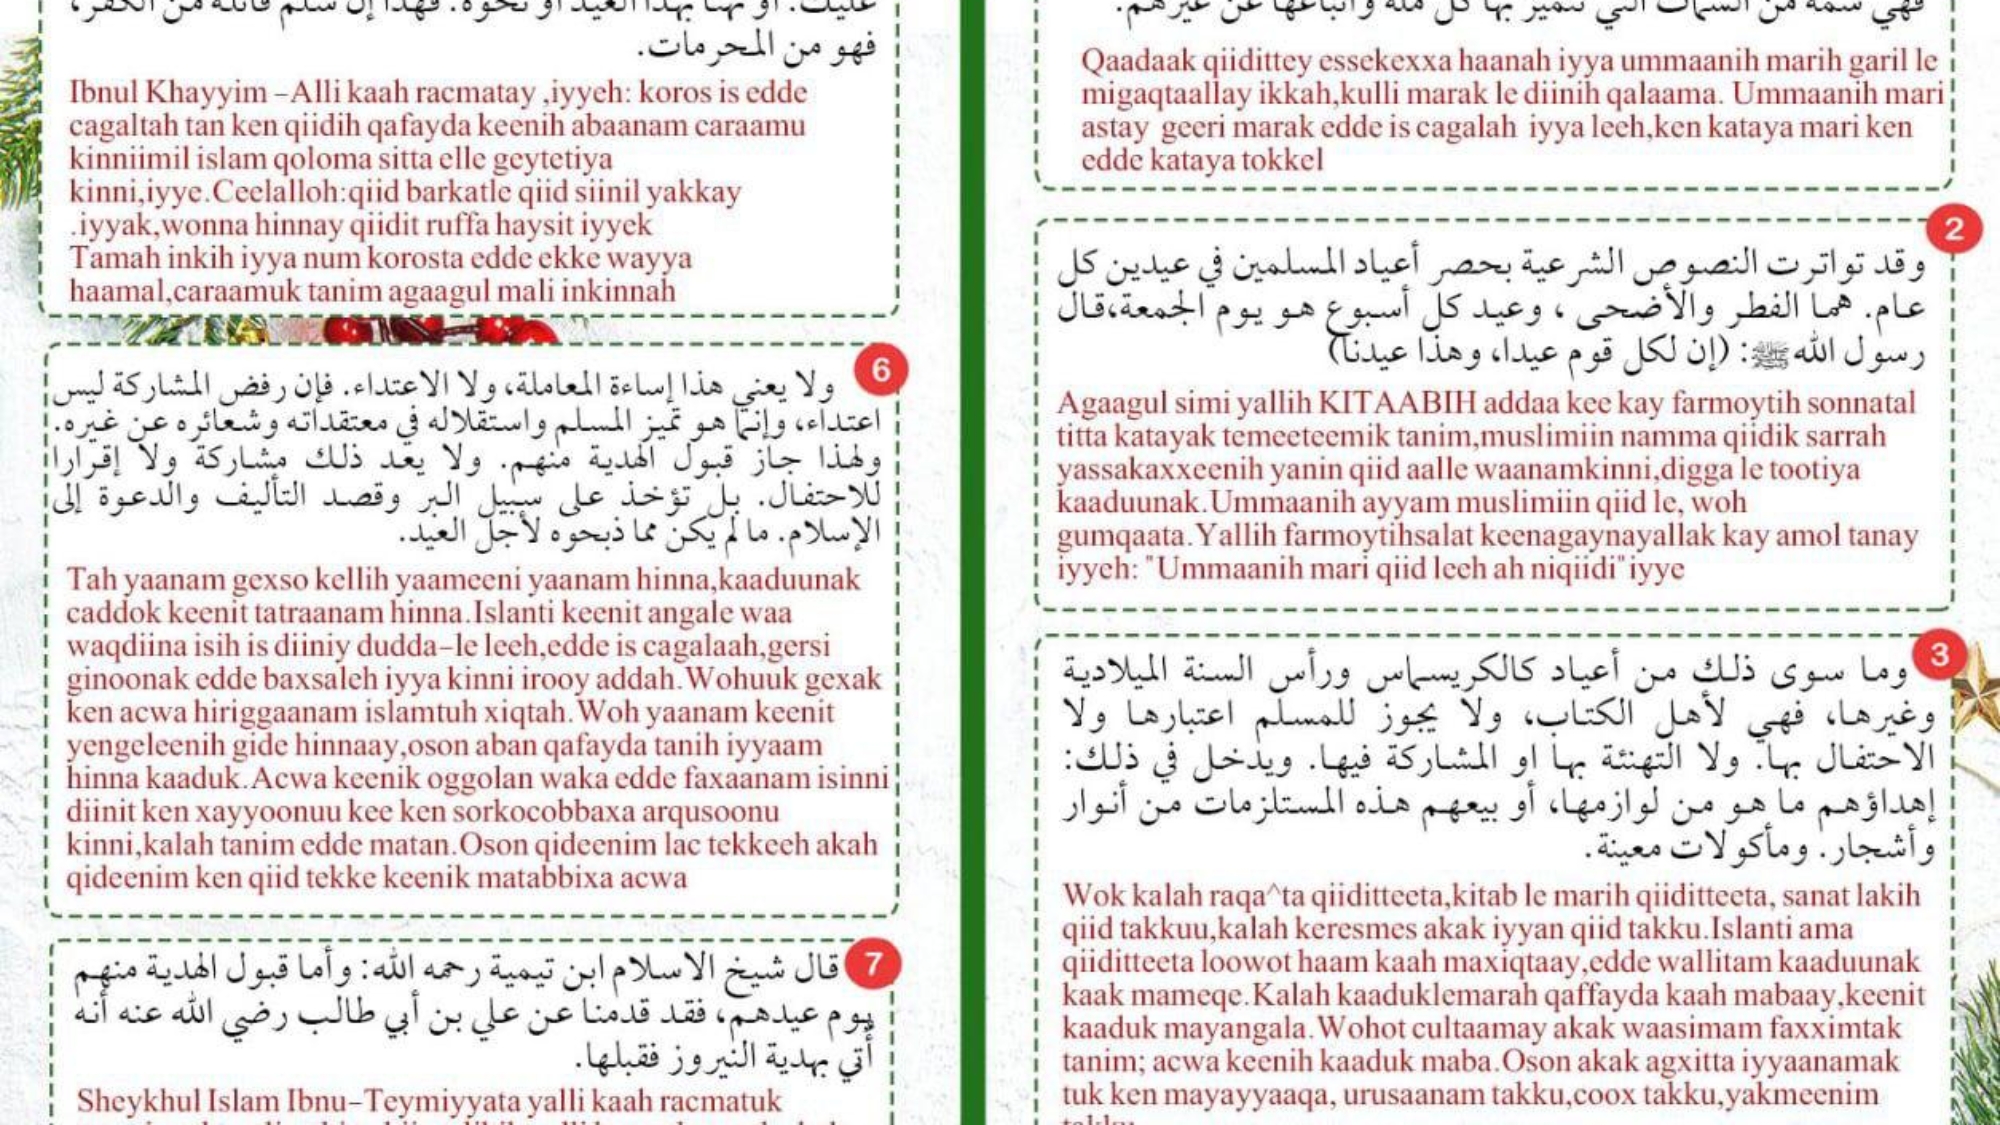 فهي سمة من السمات التي تتميز بها كل ملة وأتباعها عن غيرهم.
Qaadaak qiidittey essekexxa haanah iyya ummaanih marih garil le
migaqtaallay ikkah,kulli marak le diinih qalaama. Ummaanih mari
astay geeri marak edde is cagalah iyya leeh,ken kataya mari ken
edde kataya tokkel
2
وقد تواترت النصوص الشرعية بحصر أعياد المسلمين في عيدين كل
عام. هما الفطر والأضحى ، وعيد كل أسبوع هو يوم الجمعة،قال
رسول الله ﷺ: (إن لكل قوم عيدا، وهذا عيدنا)
Agaagul simi yallih KITAABIH addaa kee kay farmoytih sonnatal
titta katayak temeeteemik tanim,muslimiin namma qiidik sarrah
yassakaxxeenih yanin qiid aalle waanamkinni,digga le tootiya
kaaduunak.Ummaanih ayyam muslimiin qiid le, woh
gumqaata.Yallih farmoytihsalat keenagaynayallak kay amol tanay
iyyeh: "Ummaanih mari qiid leeh ah niqiidi"iyye
3
وما سوى ذلك من أعياد كالكريسماس ورأس السنة الميلادية
وغيرها، فهي لأهل الكتاب، ولا يجوز للمسلم اعتبارها ولا
الاحتفال بها. ولا التهنئة بها او المشاركة فيها. ويدخل في ذلك:
إهداؤهم ما هو من لوازمها، أو بيعهم هذه المستلزمات من أنوار
وأشجار. ومأكولات معينة.
Wok kalah raqa^ta qiiditteeta,kitab le marih qiiditteeta, sanat lakih
qiid takkuu,kalah keresmes akak iyyan qiid takku.Islanti ama
qiiditteeta loowot haam kaah maxiqtaay,edde wallitam kaaduunak
kaak mameqe.Kalah kaaduklemarah qaffayda kaah mabaay,keenit
kaaduk mayangala.Wohot cultaamay akak waasimam faxximtak
tanim; acwa keenih kaaduk maba.Oson akak agxitta iyyaanamak
tuk ken mayayyaaqa, urusaanam takku,coox takku,yakmeenim
takku
عليك. أو تهنأ بهذا العيد أو نحوه. فهذا إن سلم قائله من الكفر،
فهو من المحرمات.
Ibnul Khayyim –Alli kaah racmatay ,iyyeh: koros is edde
cagaltah tan ken qiidih qafayda keenih abaanam caraamu
kinniimil islam qoloma sitta elle geytetiya
kinni,iyye.Ceelalloh:qiid barkatle qiid siinil yakkay
.iyyak,wonna hinnay qiidit ruffa haysit iyyek
Tamah inkih iyya num korosta edde ekke wayya
haamal,caraamuk tanim agaagul mali inkinnah
6
ولا يعني هذا إساءة المعاملة، ولا الاعتداء. فإن رفض المشاركة ليس
اعتداء، وإنما هو تميز المسلم واستقلاله في معتقداته وشعائره عن غيره.
ولهذا جاز قبول الهدية منهم. ولا يعد ذلك مشاركة ولا إقرارا
للاحتفال. بل تؤخذ على سبيل البر وقصد التأليف والدعوة إلى
الإسلام. ما لم يكن مما ذبحوه لأجل العيد.
Tah yaanam gexso kellih yaameeni yaanam hinna,kaaduunak
caddok keenit tatraanam hinna.Islanti keenit angale waa
waqdiina isih is diiniy dudda–le leeh,edde is cagalaah,gersi
ginoonak edde baxsaleh iyya kinni irooy addah.Wohuuk gexak
ken acwa hiriggaanam islamtuh xiqtah.Woh yaanam keenit
yengeleenih gide hinnaay,oson aban qafayda tanih iyyaam
hinna kaaduk.Acwa keenik oggolan waka edde faxaanam isinni
diinit ken xayyoonuu kee ken sorkocobbaxa arqusoonu
kinni,kalah tanim edde matan.Oson qideenim lac tekkeeh akah
qideenim ken qiid tekke keenik matabbixa acwa
7
قال شيخ الاسلام ابن تيمية رحمه الله: وأما قبول الهدية منهم
يوم عيدهم، فقد قدمنا عن علي بن أبي طالب رضي الله عنه أنه
أتي بهدية النيروز فقبلها.
Sheykhul Islam Ibnu–Teymiyyata yalli kaah racmatuk